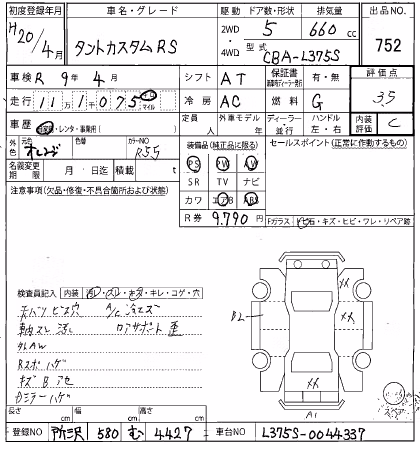 初度登録年月 車名・グレード 駆動 ドア数・形状 排気量 出品NO
H20/4月 タントカスタムRS 2WD 4WD 5 660 cc 752
型式 CBA-L375S
車検 R 9年 4月 シフト AT 保証書 有・無 評価点
走行 11万1千075 キロ マイル 冷房 AC 燃料 G 3.5
車歴 自家用・レンタ・事業用( ) 定員 人 外車モデル 年 ディーラー・並行 ハンドル 左・右 内装評価 C
外色 元色 オレンジ 色替 カラーNO R55
装備品(純正品に限る) セールスポイント(正常に作動するもの)
名義変更期限 月 日迄 積載 t
PS PW AW
SR TV ナビ
カワ エアB ABS
注意事項(欠品・修復・不具合箇所および状態)
R券 9.790 円
Fガラス トビ石・キズ・ヒビ・ワレ・リペア跡
検査員記入 内装 ヨゴレ・スレ・キズ・キレ・コゲ・穴
A/C
外AW
Rスポハゲ
キズ
ハゲ
BL
XX
XX
A1
スペア
長さ cm 幅 cm 高さ cm
登録NO 所沢 580 む 4427 車台NO L375S-0044337